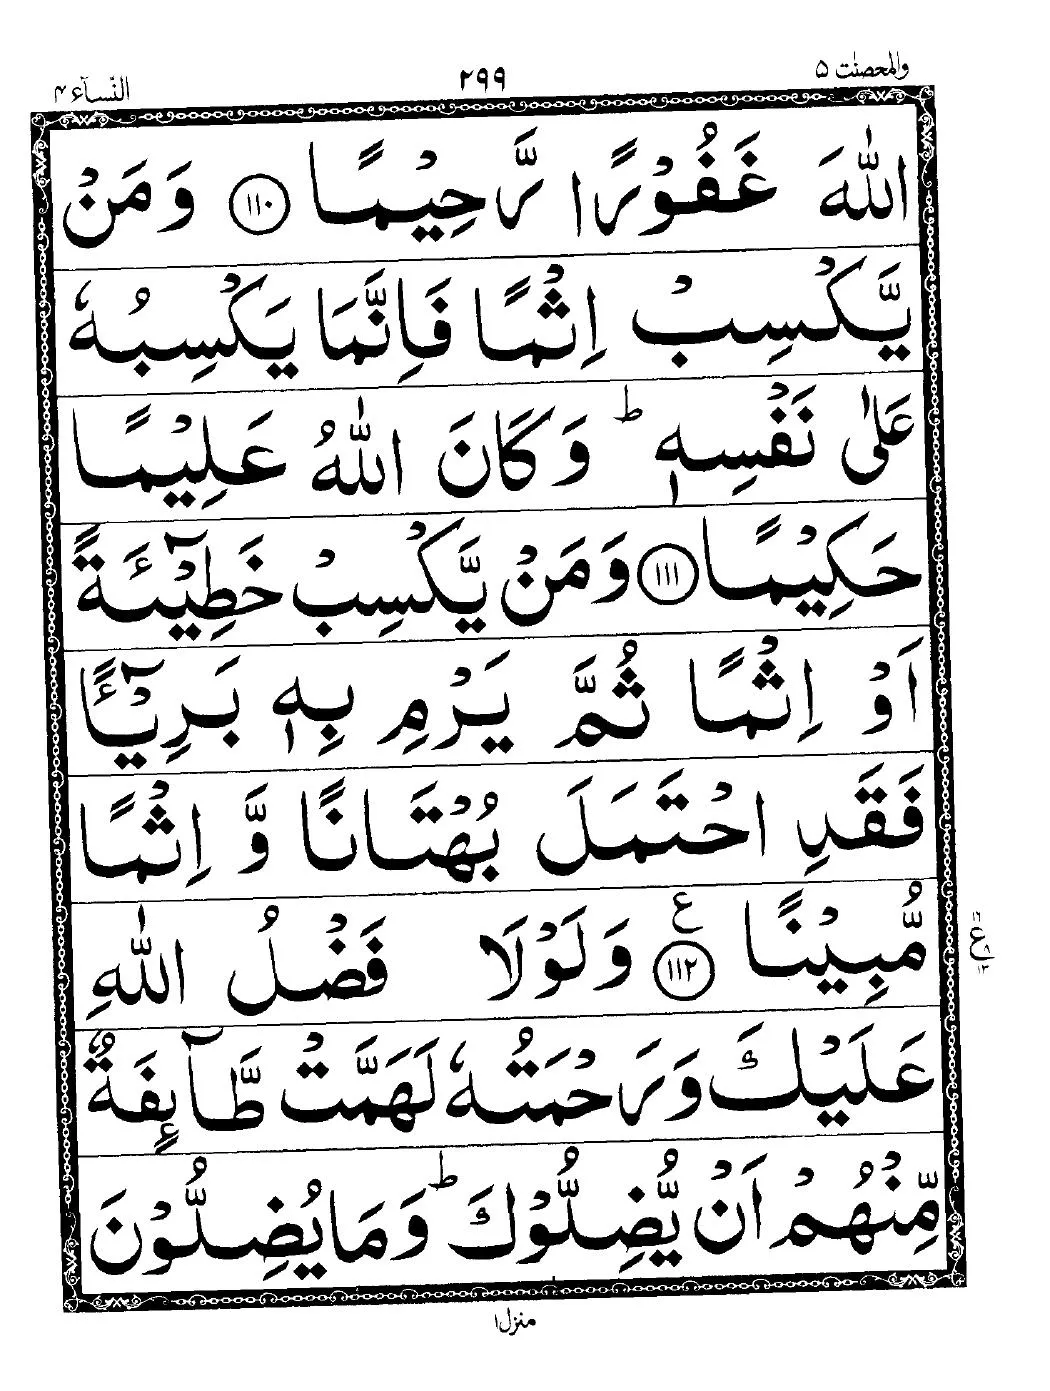 والمحصنت ۵ ۲۹۹ النسآء ۴
اللّٰهَ غَفُوْرًا رَّحِيْمًا ﴿۱۱۰﴾ وَمَنْ
يَّكْسِبْ اِثْمًا فَاِنَّمَا يَكْسِبُهٗ
عَلٰى نَفْسِهٖ ؕ وَكَانَ اللّٰهُ عَلِيْمًا
حَكِيْمًا ﴿۱۱۱﴾ وَمَنْ يَّكْسِبْ خَطِيْٓئَةً
اَوْ اِثْمًا ثُمَّ يَرْمِ بِهٖ بَرِيْٓئًا
فَقَدِ احْتَمَلَ بُهْتَانًا وَّ اِثْمًا
مُّبِيْنًا ﴿۱۱۲﴾ ع وَلَوْلَا فَضْلُ اللّٰهِ
عَلَيْكَ وَرَحْمَتُهٗ لَهَمَّتْ طَّآئِفَةٌ
مِّنْهُمْ اَنْ يُّضِلُّوْكَ ؕ وَمَا يُضِلُّوْنَ
منزل ۱